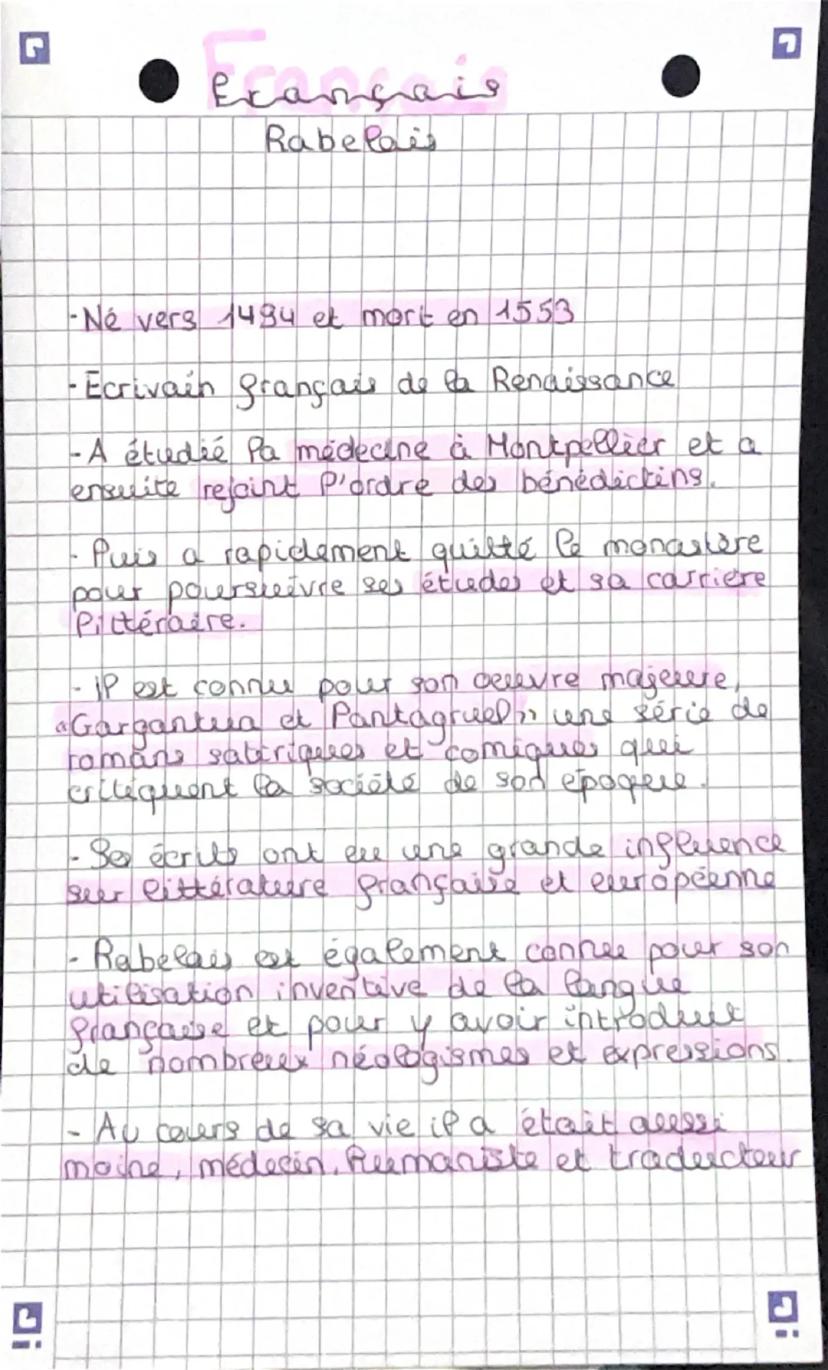 Français
Rabelais
- Né vers 1494 et mort en 1553
- Ecrivain français de la Renaissance
- A étudié la médecine à Montpellier et a
ensuite rejoint l'ordre des bénédictins.
- Puis a rapidement quitté le monastère
pour poursuivre ses études et sa carrière
littéraire.
- Il est connu pour son oeuvre majeure,
«Gargantua et Pantagruel» une série de
romans satiriques et comiques qui
critiquent la société de son époque.
- Ses écrits ont eu une grande influence
sur littérature française et européenne
- Rabelais est également connue pour son
utilisation inventive de la langue
française et pour y avoir introduit
de nombreux néologismes et expressions.
- Au cours de sa vie il a était aussi
moine, médecin, humaniste et traducteur